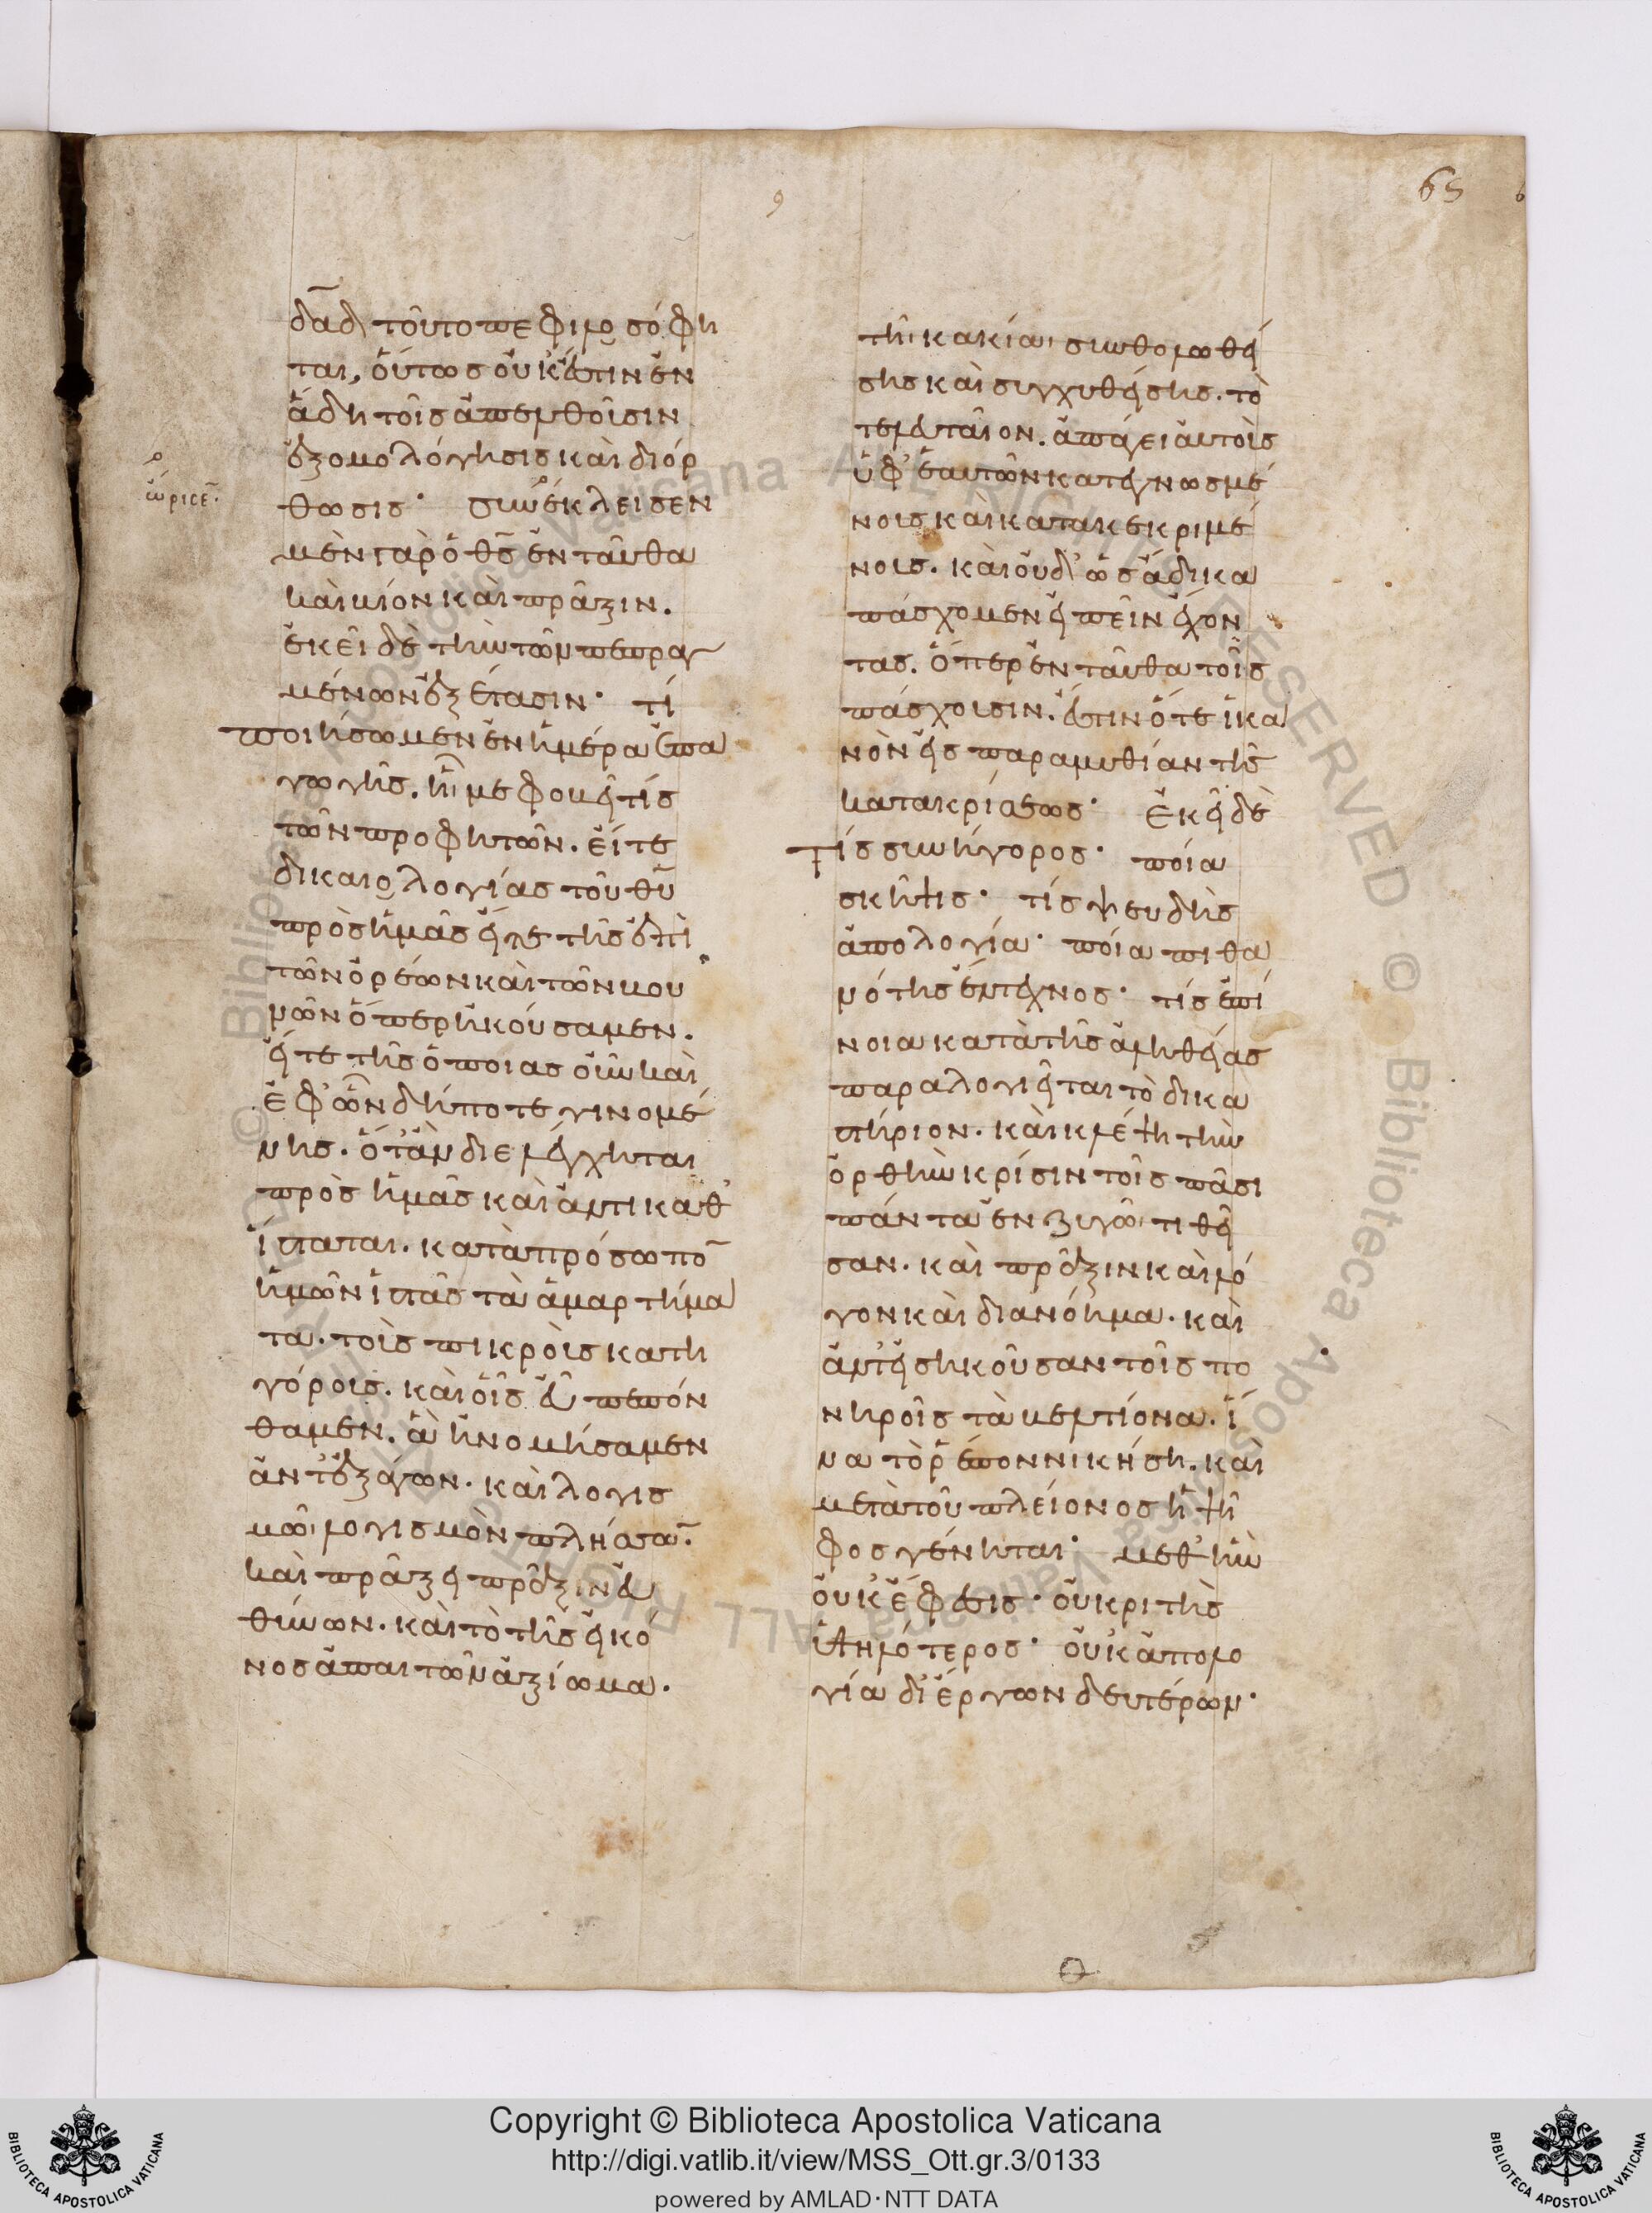 65
9
δᾱδ τοῦτο πεφιλοσόφη
ται, οὕτως οὐκ ἔστιν ἐν
ἅδη τοῖς ἀπελθοῦσιν
ἐξομολόγησις καὶ διόρ
θωσις· συνέκλεισεν
ὥρισε̄·
μὲν γὰρ ὁ θ̄ς ἐνταῦθα
καὶ βίον καὶ πρᾶξιν.
ἐκεῖ δὲ τὴν τῶν πεπραγ
μένων ἐξέτασιν· τί
ποιήσωμεν ἐν ἡμέρα ἐπα
γωγῆς. ἧ με φοβεῖ τίς
τῶν προφητῶν. εἴτε
δικαιολογίας τοῦ θ̄υ
πρὸς ἡμᾶς εἴτε τῆς ἐπὶ
τῶν ὀρέων καὶ τῶν βου
νῶν ὅπερ ἠκούσαμεν.
εἴτε τῆς ὁποίας οὖν καὶ
ἐφ' ὧν δήποτε γινομέ
νης. ὅτ' ἂν διελέγχηται
πρὸς ἡμᾶς καὶ ἀντικαθ'
ίσταται. κατὰ πρόσωπο̄
ἡμῶν ἱστὰς τὰ ἁμαρτήμα
τα. τοὺς πικροὺς κατη
γόρους. καὶ οἷς εὖ πεπόν
θαμεν. ἃ ἠνομήσαμεν
ἀντ' ἐξάγων. καὶ λογισ
μῶ λογισμὸν πλήσσω̄.
καὶ πράξει πρᾶξιν εὐ
θύνων. καὶ τὸ τῆς εἰκό
νος ἀπαιτῶν ἀξίωμα.
τῆ κακία συνθολωθεί
σης καὶ συγχυθείσης. τὸ
τελευταῖον. ἀπάγει αὐτοὺς
ὑφ' ἑαυτῶν κατεγνωσμέ
νους καὶ κατακεκριμέ
νους. καὶ οὐδ' ὡς ἄδικα
πάσχομεν εἰπεῖν ἔχον
τας. ὅπερ ἐνταῦθα τοῖς
πάσχουσιν. ἔστιν ὅτε ἱκα
νὸν εἰς παραμυθίαν τῆς
κατακρίσεως· ἐκεῖ δὲ
τίς συνήγορος· ποία
σκῆψις· τίς ψευδὴς
ἀπολογία· ποία πιθα
νότης ἔντεχνος· τίς ἐπί
νοια κατὰ τῆς ἀληθείας
παραλογιεῖται τὸ δικα
στήριον. καὶ κλέψη τὴν
ὀρθὴν κρίσιν τοῖς πᾶσι
πάντα ἐν ζυγῶ τιθεῖ
σαν. καὶ πρᾶξιν καὶ λό
γον καὶ διανόημα. καὶ
ἀντισηκοῦσαν τοῖς πο
νηροῖς τὰ βελτίονα. ἵ
να τὸ ῥέπον νικήση. καὶ
μετὰ τοῦ πλείονος ἡ ψῆ
φος γένηται· μεθ' ἣν
οὐκ ἔφεσις· οὐ κριτὴς
ὑψηλότερος· οὐκ ἀπολο
γία δι' ἔργων δευτέρων·
Copyright © Biblioteca Apostolica Vaticana
http://digi.vatlib.it/view/MSS_Ott.gr.3/0133
powered by AMLAD·NTT DATA
BIBLIOTECA APOSTOLICA VATICANA
BIBLIOTECA APOSTOLICA VATICANA
© Biblioteca Apostolica Vaticana ALL RIGHTS RESERVED